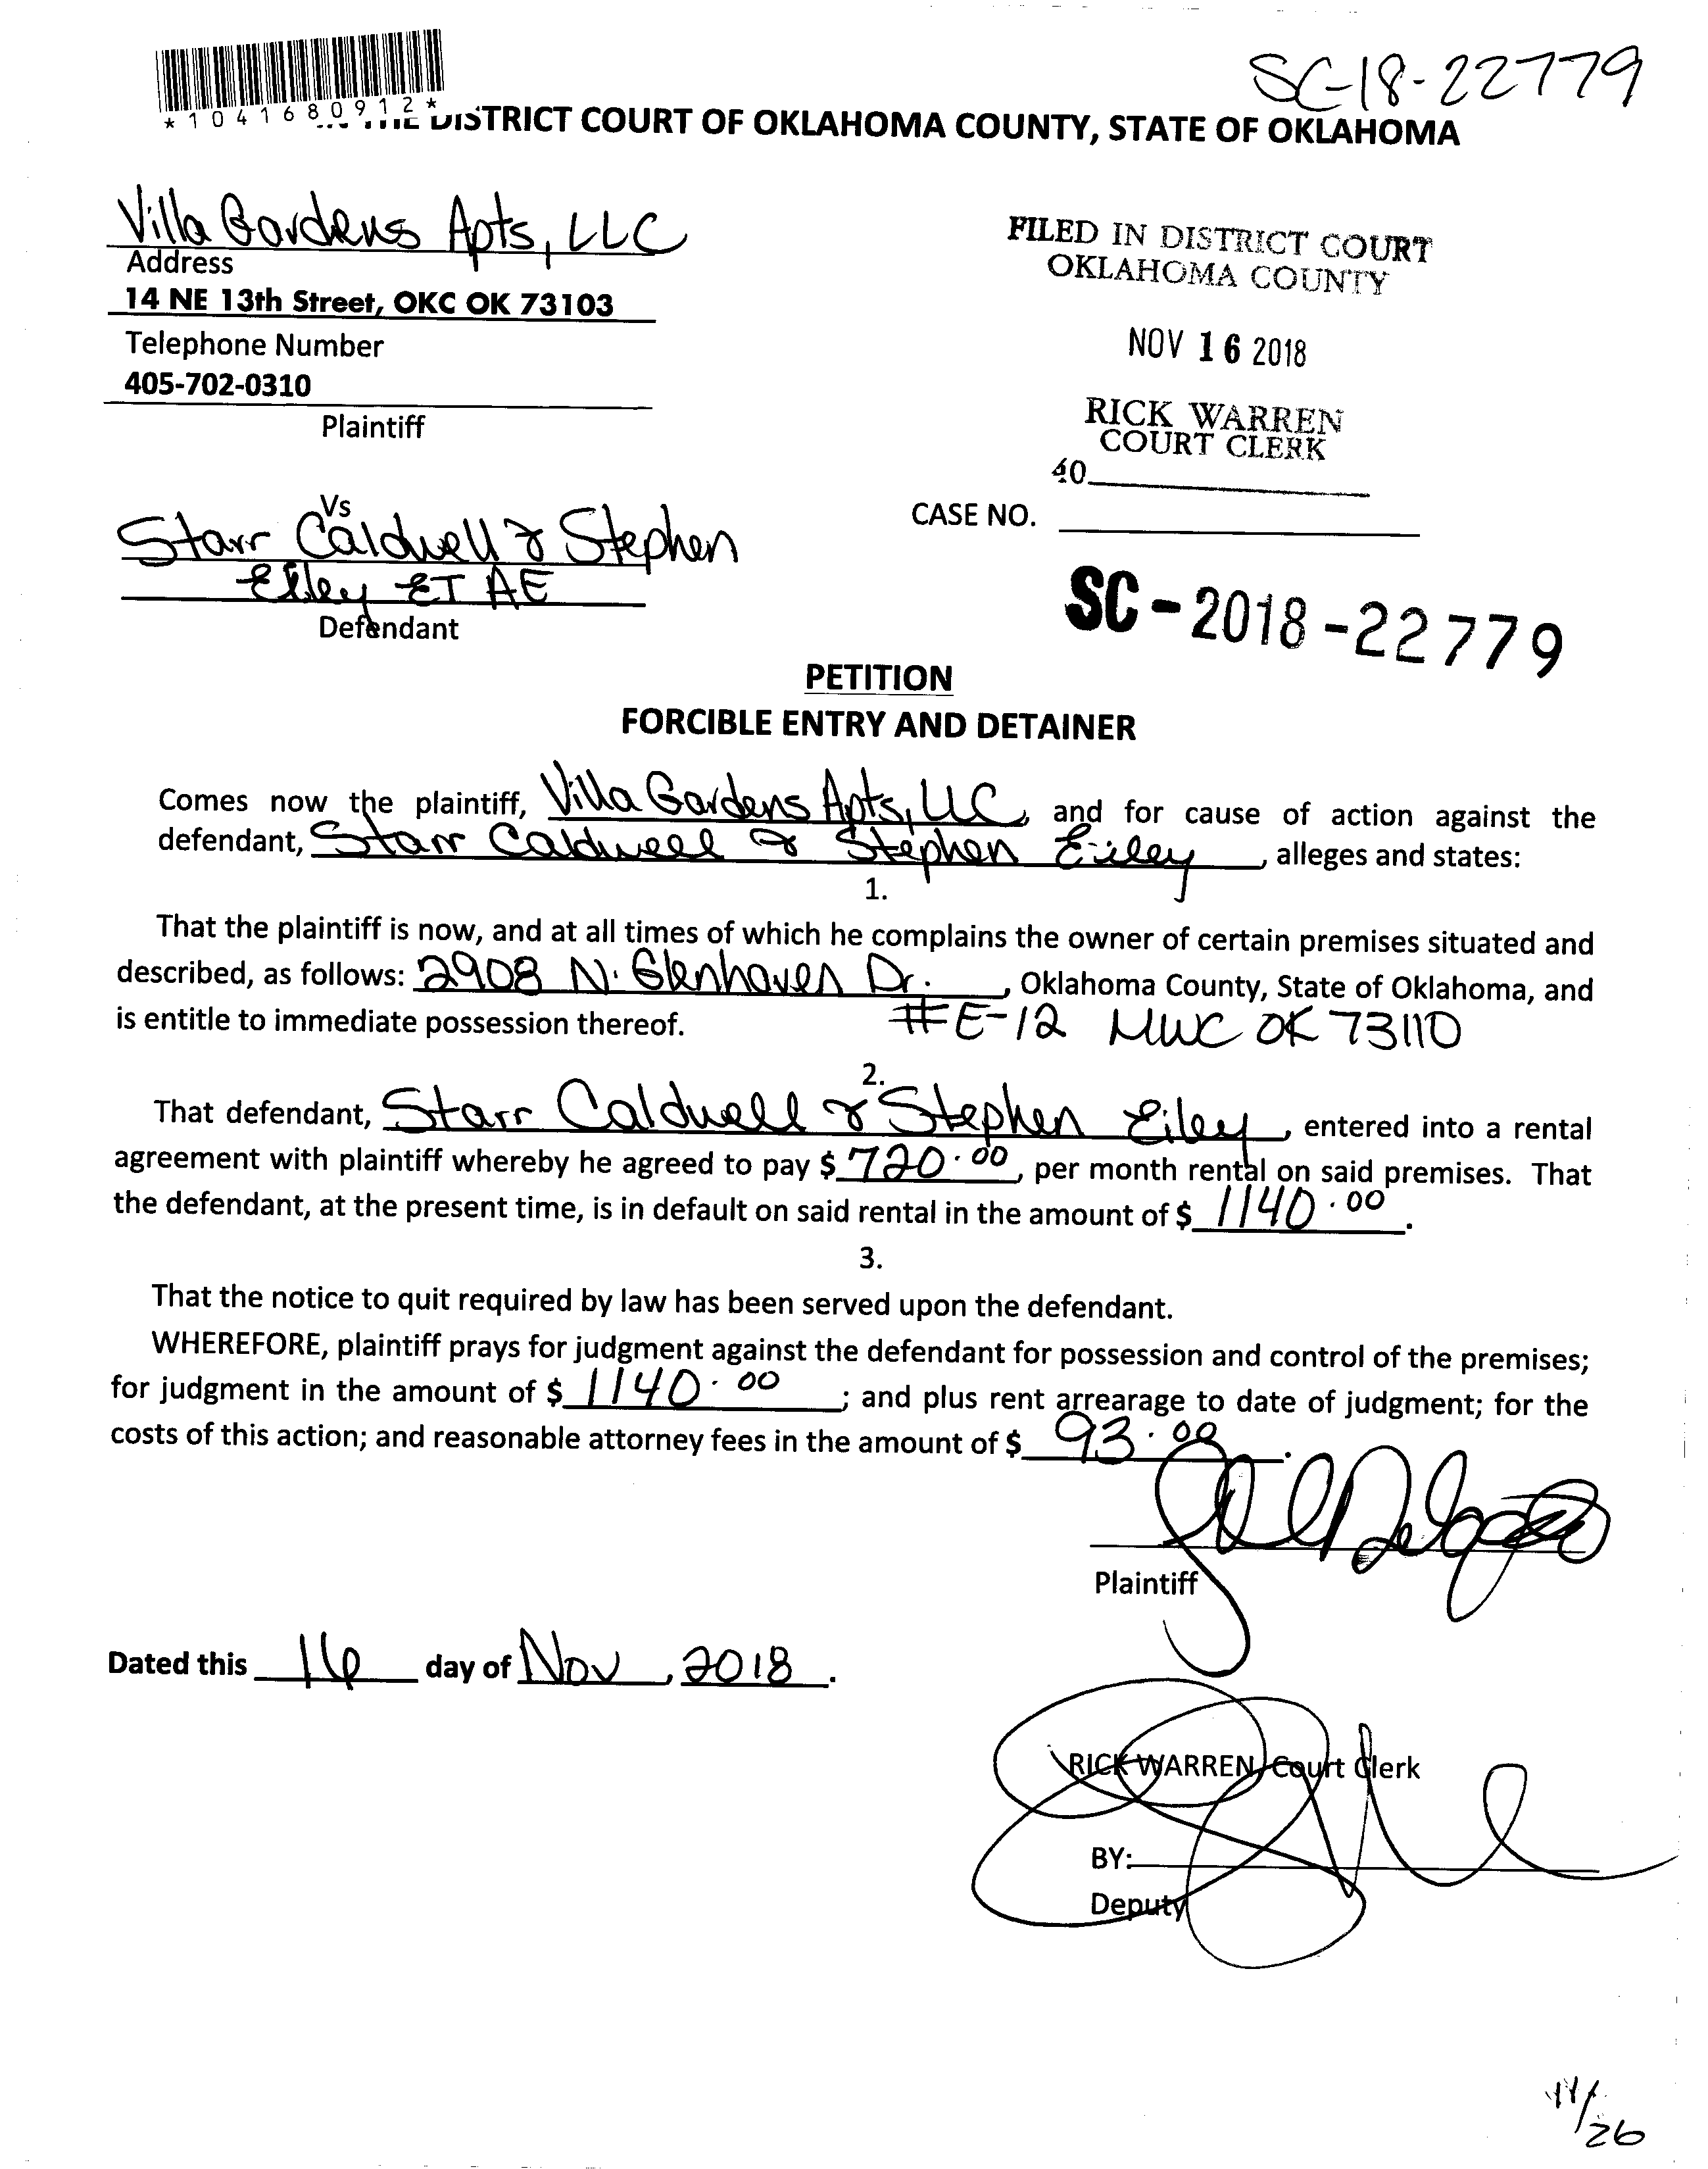 SC-18-22779
*1041680912*
DISTRICT COURT OF OKLAHOMA COUNTY, STATE OF OKLAHOMA
Villa Gardens Apts, LLC
Address
14 NE 13th Street, OKC OK 73103
Telephone Number
405-702-0310
Plaintiff
FILED IN DISTRICT COURT
OKLAHOMA COUNTY
NOV 16 2018
RICK WARREN
COURT CLERK
40
Vs
Starr Caldwell & Stephen
Eiley ET AE
Defendant
CASE NO.
SC-2018-22779
PETITION
FORCIBLE ENTRY AND DETAINER
Comes now the plaintiff, Villa Gardens Apts, LLC, and for cause of action against the
defendant, Starr Caldwell & Stephen Eiley, alleges and states:
1.
That the plaintiff is now, and at all times of which he complains the owner of certain premises situated and
described, as follows: 2908 N. Glenhaven Dr., Oklahoma County, State of Oklahoma, and
is entitle to immediate possession thereof. #E-12 MWC OK 73110
2.
That defendant, Starr Caldwell & Stephen Eiley, entered into a rental
agreement with plaintiff whereby he agreed to pay $ 720.00, per month rental on said premises. That
the defendant, at the present time, is in default on said rental in the amount of $ 1140.00.
3.
That the notice to quit required by law has been served upon the defendant.
WHEREFORE, plaintiff prays for judgment against the defendant for possession and control of the premises;
for judgment in the amount of $ 1140.00; and plus rent arrearage to date of judgment; for the
costs of this action; and reasonable attorney fees in the amount of $ 93.00.
Plaintiff
Dated this 16 day of Nov, 2018.
RICK WARREN, Court Clerk
BY:
Deputy
11/26